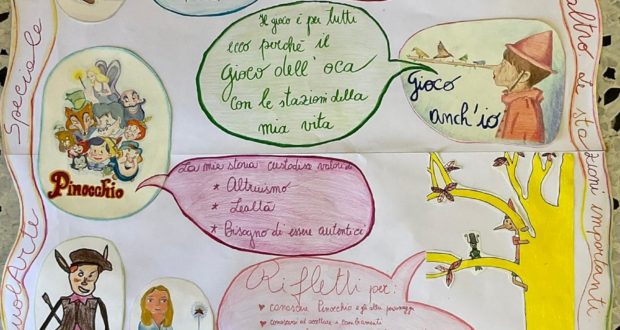 Speciale
Il gioco è per tutti
ecco perché il
gioco dell'oca
con le stazioni della
mia vita
Gioco
anch'io
altro le stazioni importanti
Pinocchio
La mia storia custodisce valori di
* Altruismo
* Lealtà
* Bisogno di essere autentici
Rifletti per:
♥ conoscere Pinocchio e gli altri personaggi
♥ conoscersi ed accettare i cambiamenti